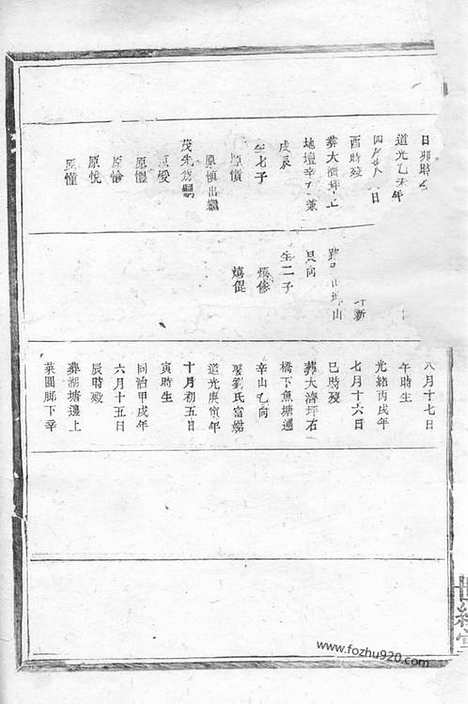 日卯時
道光乙未年
日
酉時歿
葬大濟坪上
地壇辛
戌辰
生七子
原慎
原慎出繼
茂先為嗣
原愛
原懷
原愉
原悅
原懂
新
山
艮向
生二子
煥修
煥焜
八月十七日
午時生
光緒丙戌年
七月十六日
巳時歿
葬大濟坪石
橋下魚塘邊
辛山乙向
娶劉氏富姑
道光庚寅年
十月初五日
寅時生
同治甲戌年
六月十五日
辰時歿
葬湖塘邊上
菜園腳下辛
世綵堂
www.fozhu920.com